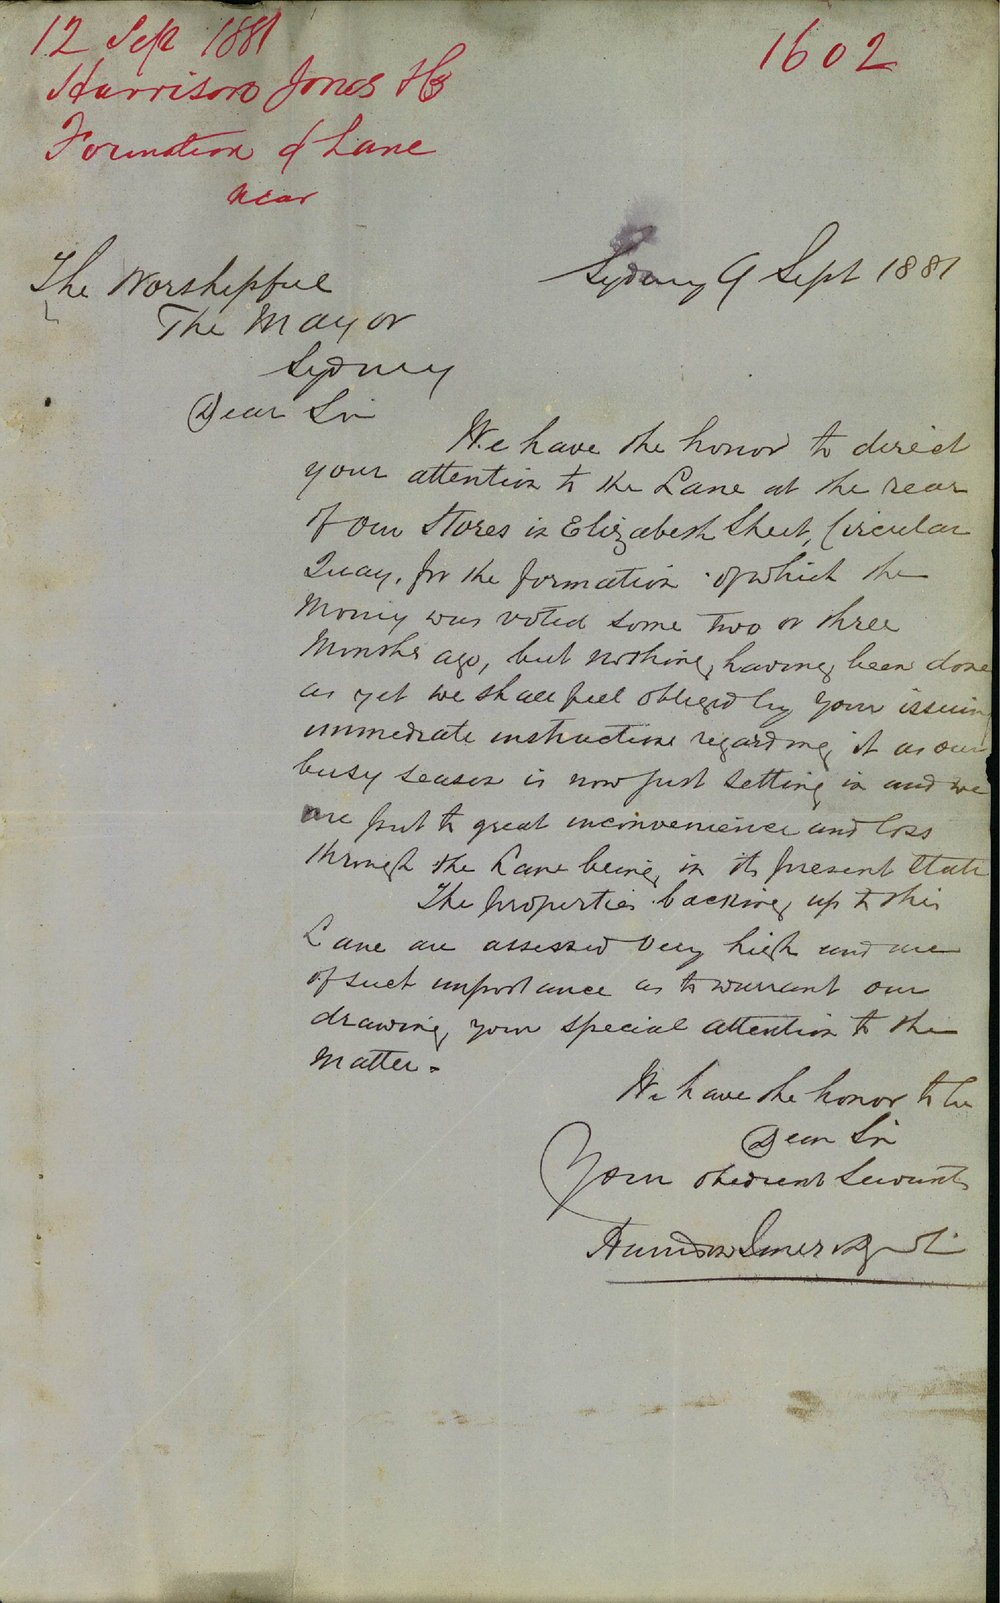 12 Sept 1881
1602
Harrison Jones &
Formation of Lane
near
Sydney 9 Sept 1881
The Worshipful
The Mayor
Sydney
Dear Sir
We have the honor to direct
your attention to the Lane at the rear
of our Stores in Elizabeth Street, Circular
Quay, for the formation of which the
Money was voted some two or three
Months ago, but nothing having been done
as yet we shall feel obliged by your issuing
immediate instructions regarding it as our
busy season is now just setting in and we
are put to great inconvenience and loss
through the Lane being in its present state
The properties backing up to this
Lane are assessed very high and are
of such importance as to warrant our
drawing your special attention to the
Matter.
We have the honor to be
Dear Sir
Your obedient Servants
Harrison Jones &